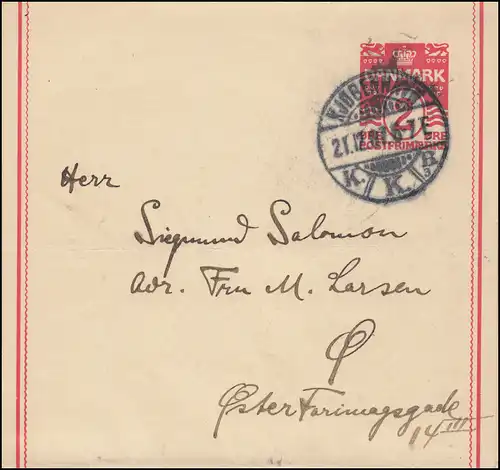 DANMARK
KJØBENHAVN
2
ØRE ØRE
POSTFRIMÆRKE
K. K. B.
3
Herr
Siegmund Salomon
adr. Fru M. Larsen
Ø
Øster Farimagsgade
14 III